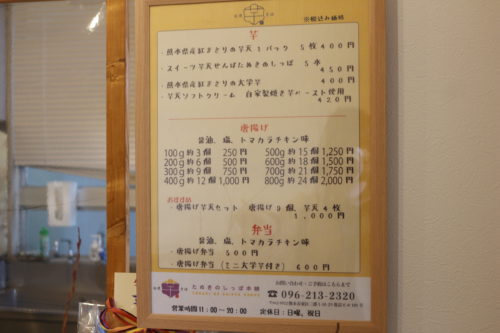 ※税込み価格
芋
・熊本県産紅はるかの芋天１パック 5枚400円
・スイーツ芋天せんばたぬきのしっぽ 5本 450円
・熊本県産紅はるかの大学芋 400円
・芋天ソフトクリーム 自家製焼き芋ペースト使用 420円
唐揚げ
醤油、塩、トマカラチキン味
100g 約3個 250円 500g 約15個 1,250円
200g 約6個 500円 600g 約18個 1,500円
300g 約9個 750円 700g 約21個 1,750円
400g 約12個 1,000円 800g 約24個 2,000円
おすすめ
・唐揚げ芋天セット 唐揚げ9個、芋天4枚
1,000円
弁当
醤油、塩、トマカラチキン味
・唐揚げ弁当 500円
・唐揚げ弁当（ミニ大学芋付き） 600円
たぬきのしっぽ本舗
TANUKI NO SHIPPO HONPO
お問い合わせ・ご予約はこちらまで
☎ 096-213-2320
営業時間 11:00～20:00 定休日：日曜、祝日